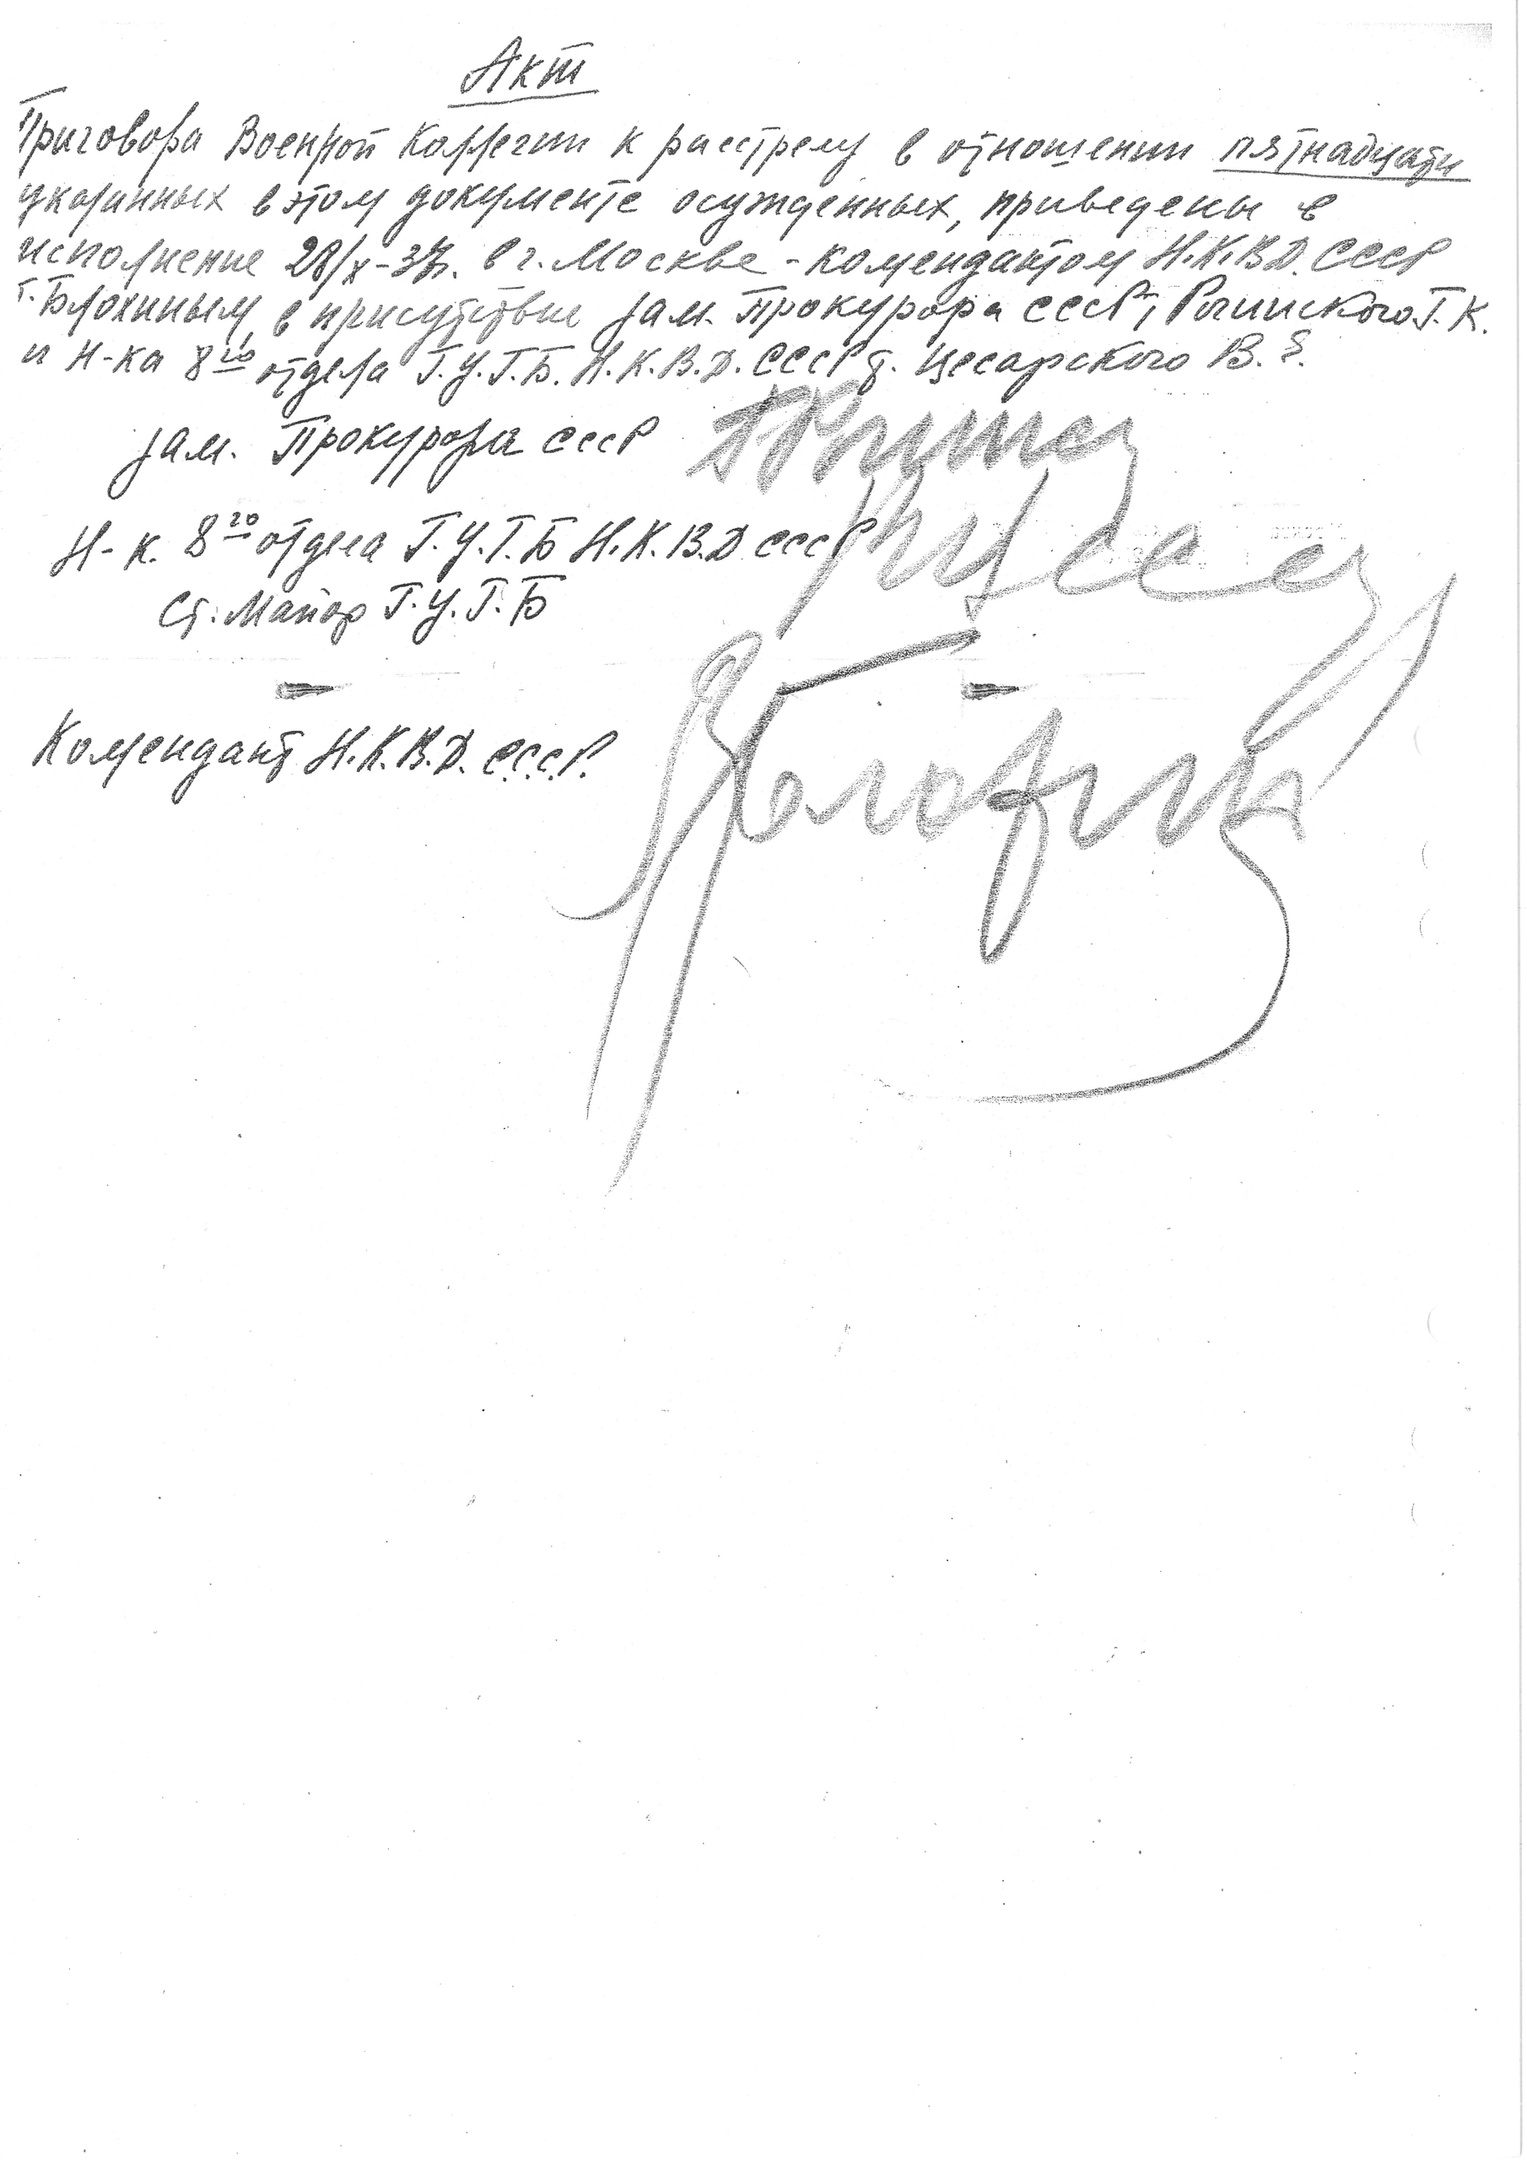 Акт
Приговора Военной Коллегии к расстрелу в отношении пятнадцати
указанных в этом документе осужденных, приведены в
исполнение 28/X-37г. в г. Москве - комендантом Н.К.В.Д. СССР
т. Блохиным, в присутствие зам. Прокурора СССР т. Рогинского Г.К.
и Н-ка 8го отдела Г.У.Г.Б. Н.К.В.Д. СССР т. Цесарского В.Е.
зам. Прокурора СССР
Н-к. 8го отдела Г.У.Г.Б Н.К.В.Д СССР
Ст. Майор Г.У.Г.Б
Комендант Н.К.В.Д. С.С.С.Р.